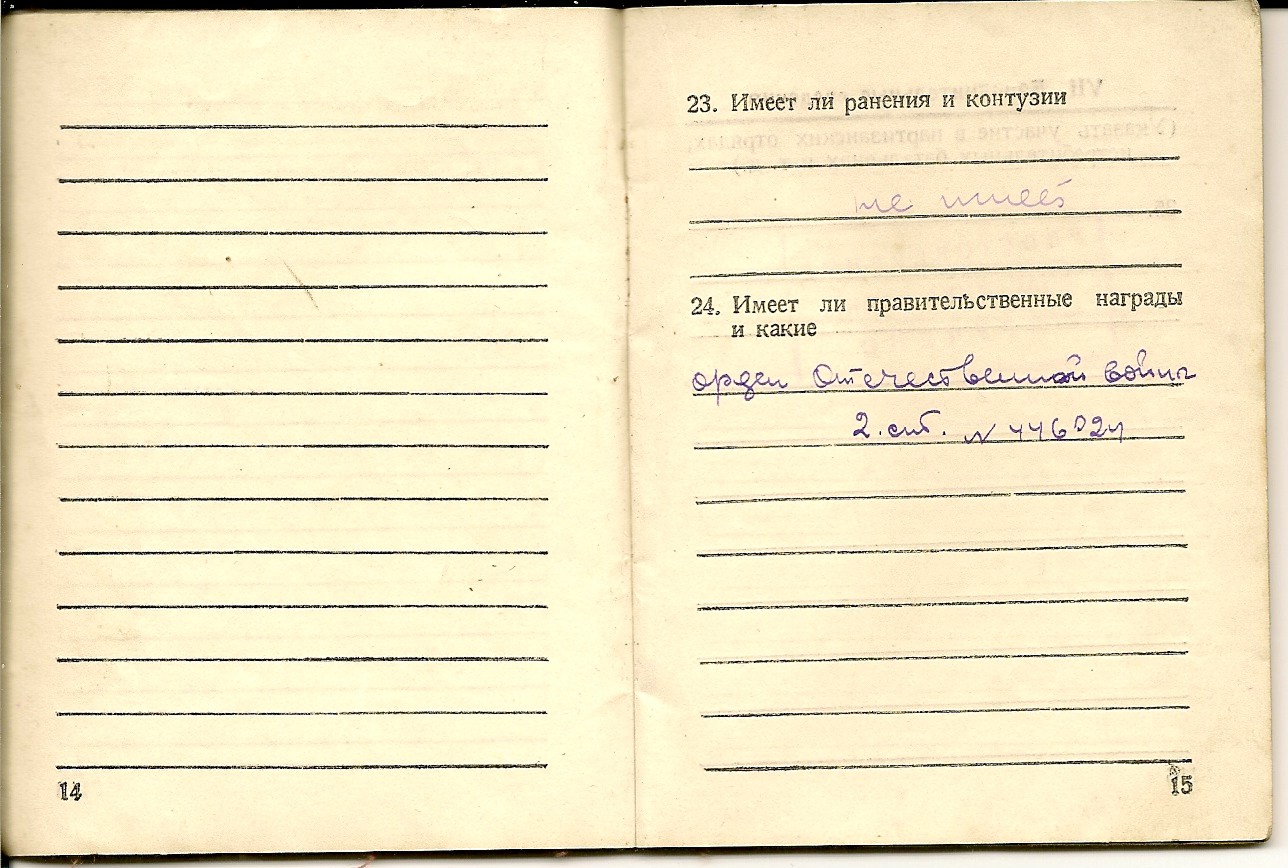 23. Имеет ли ранения и контузии
не имеет
24. Имеет ли правительственные награды
и какие
орден Отечественной войны
2. ст. N
14
15